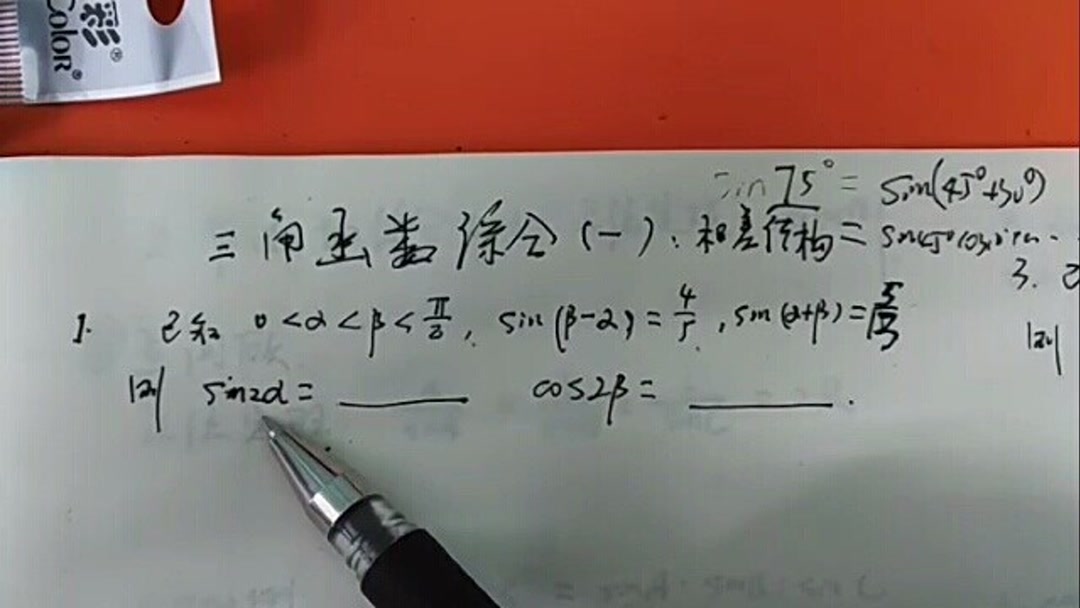 彩®
Color®
sin75°= sin(45°+30°)
三角函数综合(一):和差结构= sin45°cos
3.
1. 已知 0<α<β<π/2, sin(β-α)=4/5, sin(α+β)=5/13
则 sin2α= ______ cos2β= ______.
则